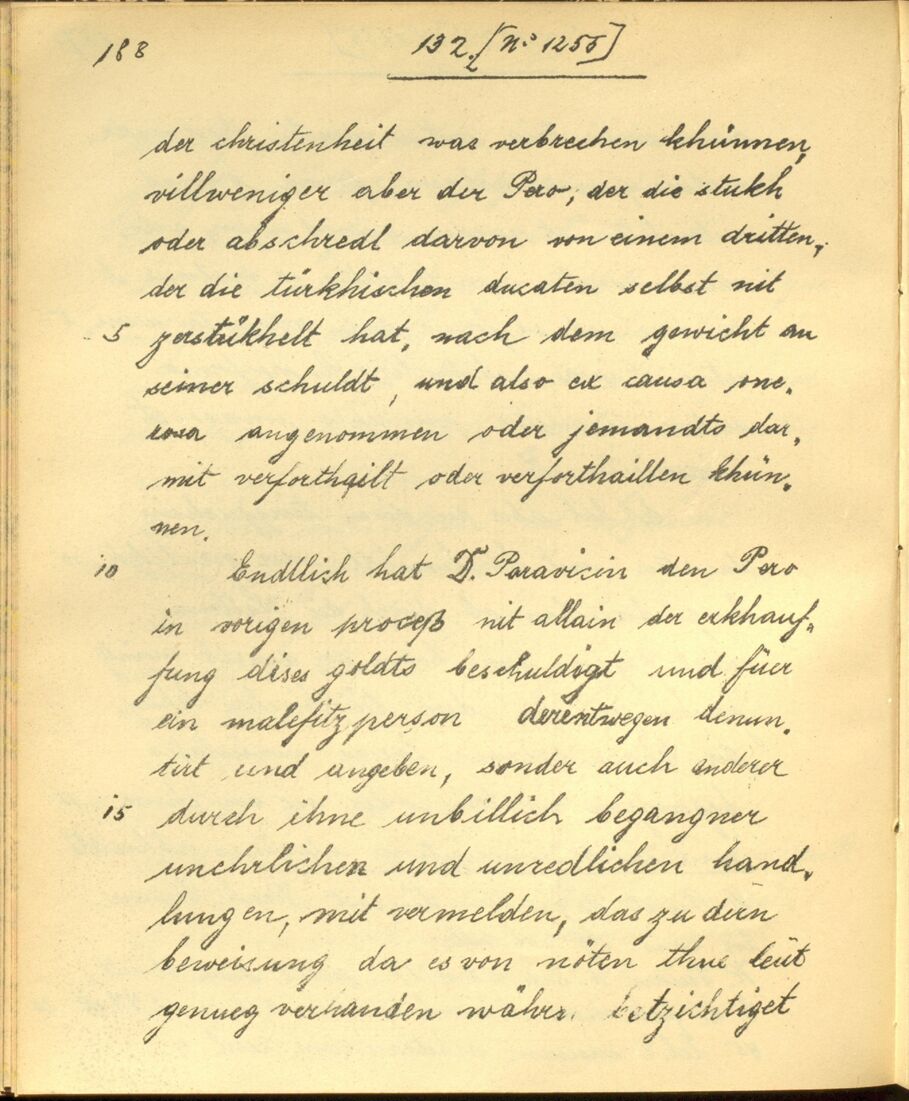 188 132. [No 1255]
der christenheit was verbrechen khünnen,
villweniger aber der Pero, der die stukh
oder abschredl darvon von einem dritten,
der die türkhischen ducaten selbst nit
5 zerstükhelt hat, nach dem gewicht an
seiner schuldt, und also ex causa one„
rosa angenommen oder jemandts dar„
mit verforthailt oder verforthaillen khün„
nen.
10 Endtlich hat D. Paravicin den Pero
in vorigen proceß nit allain der erkhauf„
fung dises goldts beschuldigt und füer
ein malefitzperson derentwegen denun„
tirt und angeben, sonder auch anderer
15 durch ihne unbillich begangner
unehrlichen und unredlichen hand„
lungen, mit vermelden, das zu dern
beweisung da es von nöten thue leüt
genueg verhanden währn betzichtiget